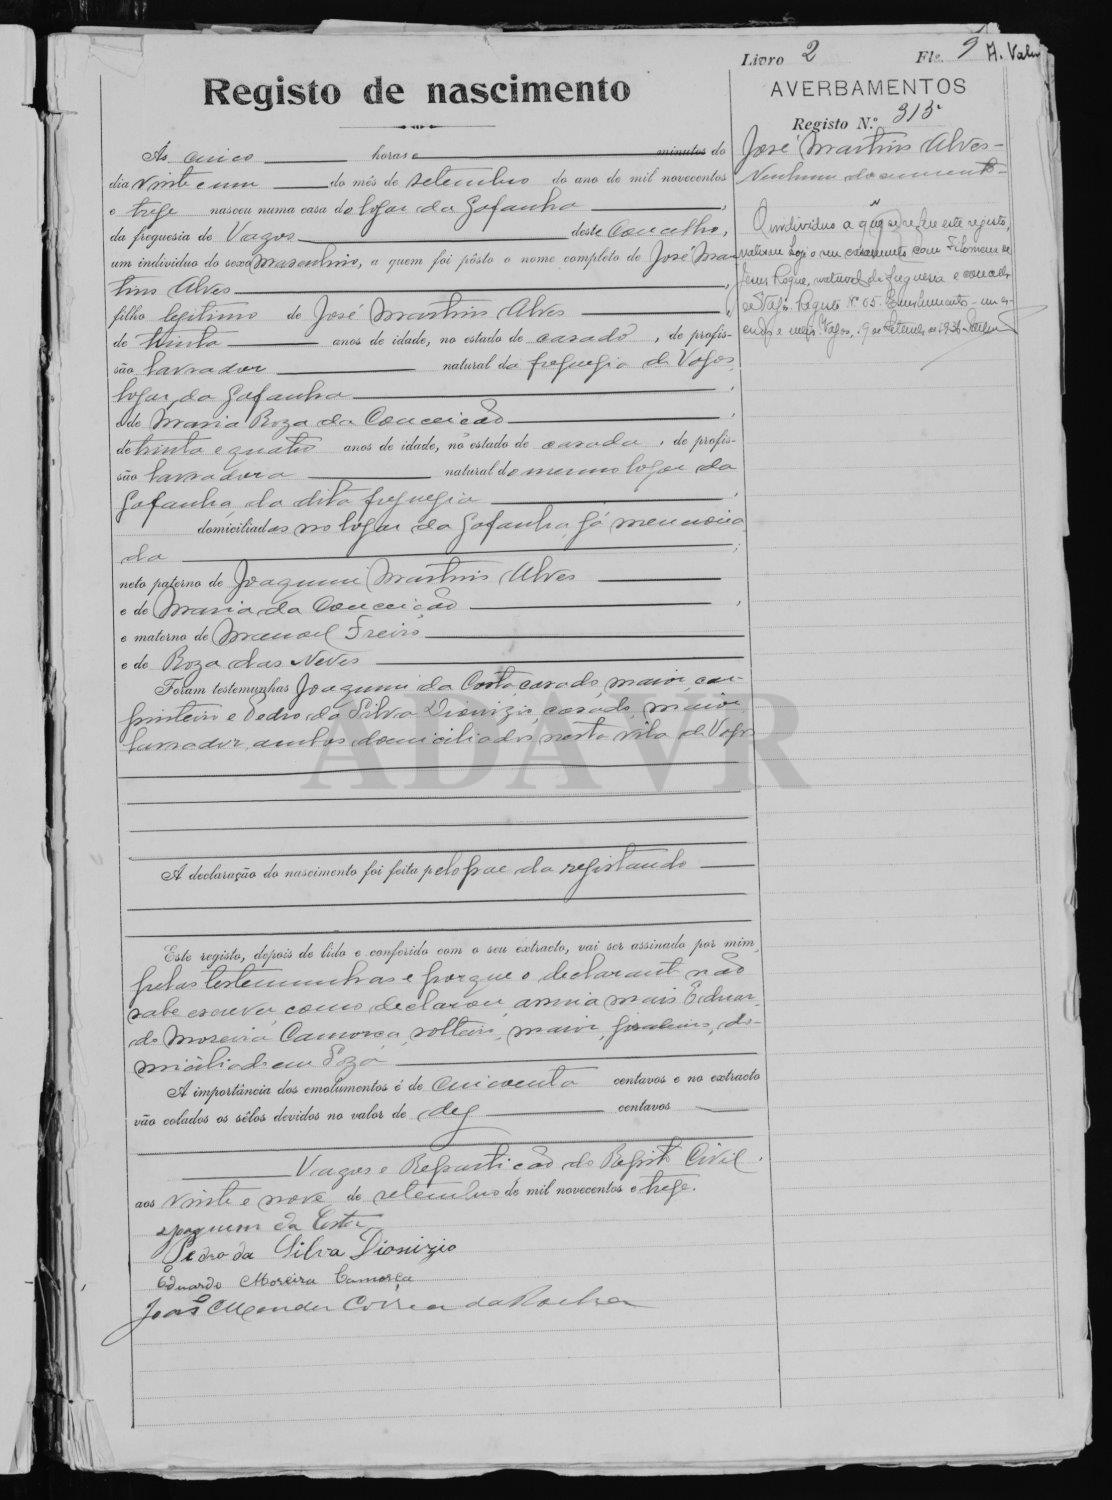 Livro 2 Fls. 9 A. Valm
Registo de nascimento
AVERBAMENTOS
Registo N.º 315
José Martins Alves
Nenhum documento
O individuo a que se refere este registo,
realisou hoje o seu casamento com Filomena de
Jesus Roque, natural da freguesia e concelho
de Vagos. Registo Nº 65. Emolumento - um es-
cudo e meio. Vagos, 9 de Setembro de 1936
Ás cinco horas e minutos do
dia vinte e um do mês de setembro do ano de mil novecentos
e treze nasceu numa casa do logar da Gafanha,
da freguesia de Vagos deste Concelho,
um individuo do sexo Masculino, a quem foi pôsto o nome completo de José Mar
tins Alves,
filho legitimo de José Martins Alves,
de trinta anos de idade, no estado de casado, de profis-
são lavrador natural da freguesia de Vagos,
logar da Gafanha,
e de Maria Roza da Conceicão,
de trinta e quatro anos de idade, no estado de casada, de profis-
são lavradora natural do mesmo logar da
Gafanha, da dita freguezia,
domiciliados no logar da Gafanha já menciona
da;
neto paterno de Joaquim Martins Alves
e de Maria da Conceição,
e materno de Manoel Freire
e de Roza das Neves
Foram testemunhas Joaquim da Costa casado, maior, car-
pinteiro e Pedro da Silva Dionizio, casado, maior
lavrador, ambos domiciliados nesta vila de Vagos
A declaração do nascimento foi feita pelo pae do registando
Este registo, depois de lido e conferido com o seu extracto, vai ser assinado por mim,
pelas testemunhas e porque o declarante não
sabe escrever, como declarou, assina mais Eduar-
do Moreira Camorça, solteiro, maior, do-
miciliado em Soza
A importância dos emolumentos é de cincoenta centavos e no extracto
vão colados os sêlos devidos no valor de dez centavos
Vagos e Repartição do Registo Civil.
aos vinte e nove de setembro de mil novecentos e treze.
Joaquim da Costa
Pedro da Silva Dionizio
Eduardo Moreira Camorça
João Mendes Corrêa da Rocha
ADAVR